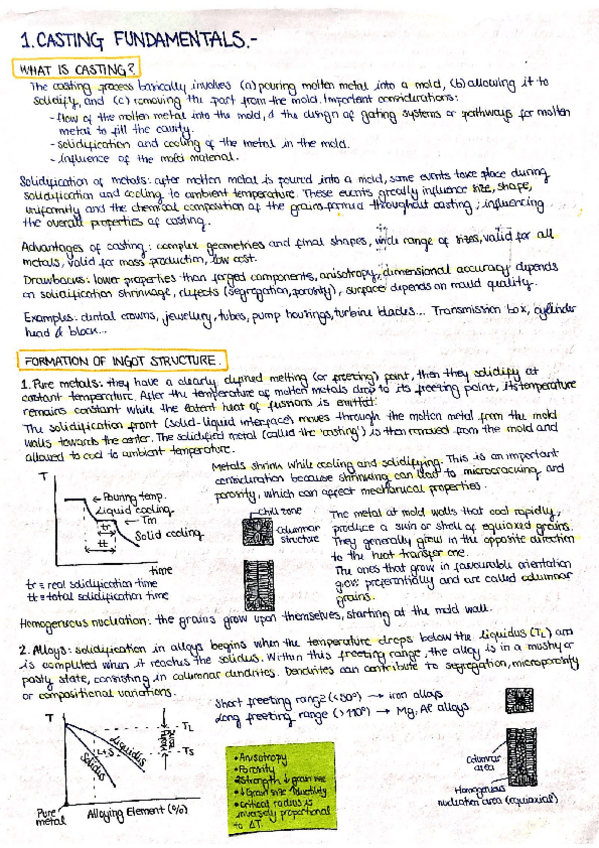 1. CASTING FUNDAMENTALS.-
WHAT IS CASTING?
The casting process basically involves (a) pouring molten metal into a mold, (b) allowing it to
solidify, and (c) removing the part from the mold. Important considerations:
- flow of the molten metal into the mold, & the design of gating systems or pathways for molten
metal to fill the cavity.
- solidification and cooling of the metal in the mold.
- influence of the mold material.
Solidification of metals: after molten metal is poured into a mold, some events take place during
solidification and cooling to ambient temperature. These events greatly influence size, shape,
uniformity and the chemical composition of the grains formed throughout casting; influencing
the overall properties of casting.
Advantages of casting: complex geometries and final shapes, wide range of sizes, valid for all
metals, valid for mass production, low cost.
Drawbacks: lower properties than forged components, anisotropy, dimensional accuracy depends
on solidification shrinkage, defects (segregation, porosity), surface depends on mould quality.
Examples: dental crowns, jewellery, tubes, pump housings, turbine blades... Transmission box, cylinder
head & block...
FORMATION OF INGOT STRUCTURE.
1. Pure metals: they have a clearly defined melting (or freezing) point, then they solidify at
constant temperature. After the temperature of molten metals drop to its freezing point, its temperature
remains constant while the latent heat of fusions is emitted.
The solidification front (solid-liquid interface) moves through the molten metal from the mold
walls towards the center. The solidified metal (called the 'casting') is then removed from the mold and
allowed to cool to ambient temperature.
Metals shrink while cooling and solidifying. This is an important
consideration because shrinking can lead to microcracking and
porosity, which can affect mechanical properties.
T
Pouring temp.
Liquid cooling
Tm
Solid cooling
tr
tt
time
tr = real solidification time
tt = total solidification time
Chill zone
Columnar
structure
The metal at mold walls that cool rapidly,
produce a skin or shell of equiaxed grains.
They generally grow in the opposite direction
to the heat transfer one.
The ones that grow in favourable orientation
grow preferentially and are called columnar
grains.
Homogeneous nucleation: the grains grow upon themselves, starting at the mold wall.
2. Alloys: solidification in alloys begins when the temperature drops below the liquidus (TL) and
is completed when it reaches the solidus. Within this freezing range, the alloy is in a mushy or
pasty state, consisting in columnar dendrites. Dendrites can contribute to segregation, microporosity
or compositional variations.
Short freezing range (<50°) → iron alloys
Long freezing range (>110°) → Mg, Al alloys
T
TL
TS
Liquidus
L+S
Solidus
Pure
metal
Alloying Element (%)
• Anisotropy
• Porosity
Strength ↓ grain size
• ↓ Grain size ductility
• Critical radius is
inversely proportional
to ΔT.
Columnar
area
Homogenous
nucleation area (equiaxial)